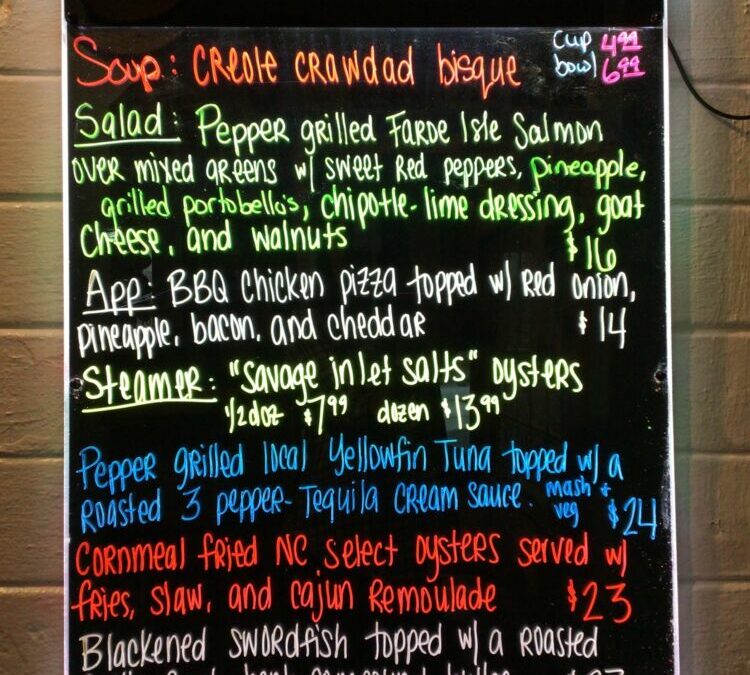 Soup: Creole crawdad bisque cup 4.99
bowl 6.99
Salad: Pepper grilled Faroe Isle Salmon
over mixed greens w/ sweet red peppers, pineapple,
grilled portobello's, chipotle-lime dressing, goat
cheese, and walnuts $16
App: BBQ chicken pizza topped w/ red onion,
pineapple, bacon, and cheddar $14
Steamer: "savage inlet salts" oysters
1/2 doz $7.99 dozen $13.99
Pepper grilled local Yellowfin Tuna topped w/ a
roasted 3 pepper-Tequila cream sauce. mash +
veg $24
Cornmeal fried NC Select oysters served w/
fries, slaw, and cajun remoulade $23
Blackened swordfish topped w/ a roasted